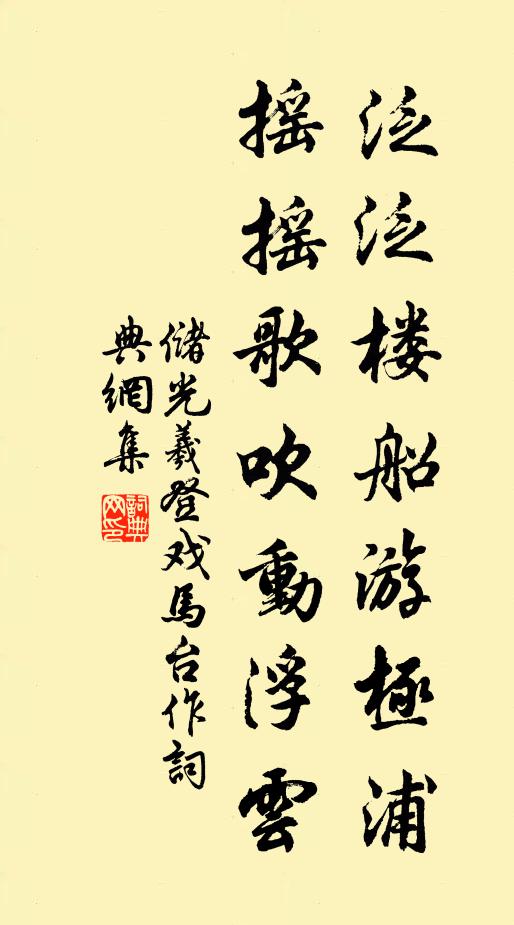 泛泛楼船游極浦
摇摇歌吹動浮雲
儲光羲登戏馬台作詞
典網集
詞典
网印